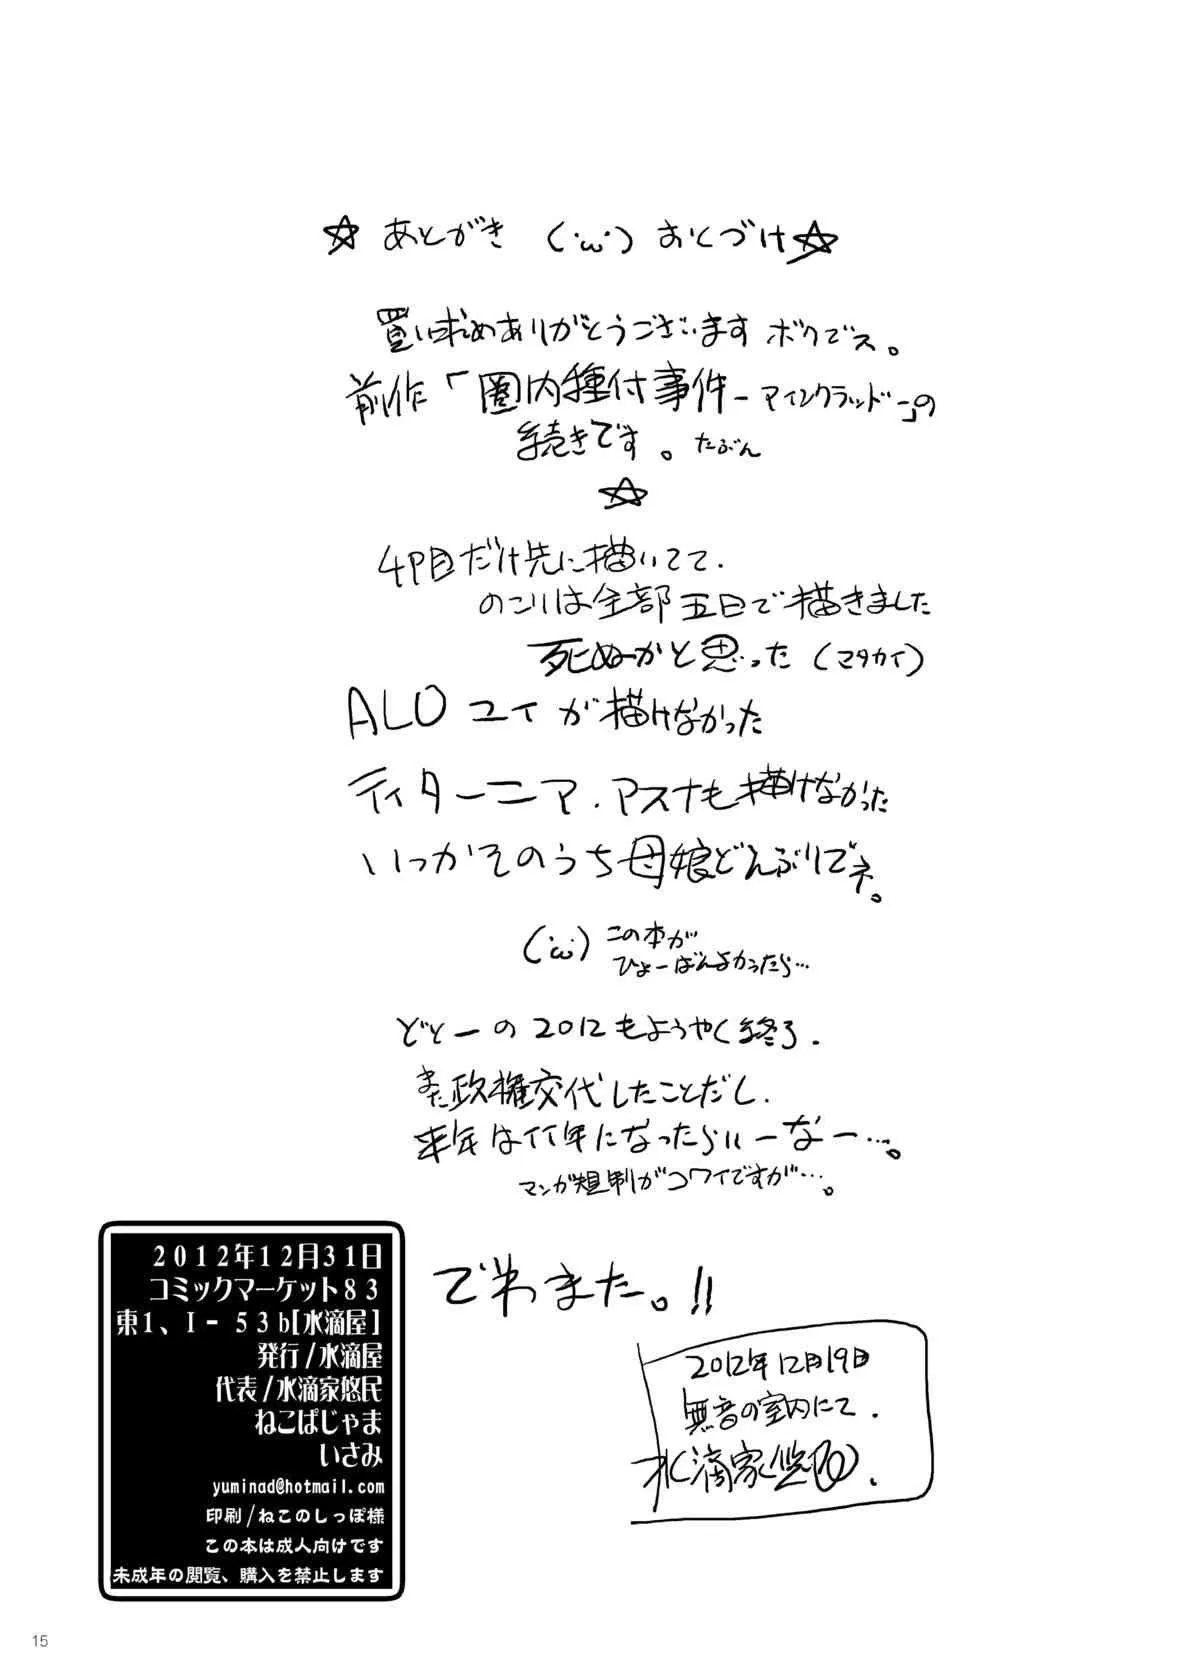 ☆ あとがき (・ω・) おくづけ☆
買い求めありがとうございます ボクでス。
前作「圏内種付事件-アインクラッド-」の
続きです。たぶん
☆
4P目だけ先に描いてて.
のこりは全部五日で描きました
死ぬーかと思った (マタカイ)
ALO ユイが描けなかった
ティターニア.アスナも描けなかった
いっかそのうち母娘どんぶりでネ。
(・ω・) この本が
ひょーばんよかったら…
どとーの2012もようやく終了.
また政権交代したことだし.
来年はイイ年になったらいーなー…。
マンガ規制がコワイですが…。
でわまた。!!
2012年12月19日
無音の室内にて.
水滴家悠民.
2012年12月31日
コミックマーケット83
東1、I-53b[水滴屋]
発行/水滴屋
代表/水滴家悠民
ねこぱじゃま
いさみ
yuminad@hotmail.com
印刷/ねこのしっぽ様
この本は成人向けです
未成年の閲覧、購入を禁止します
15